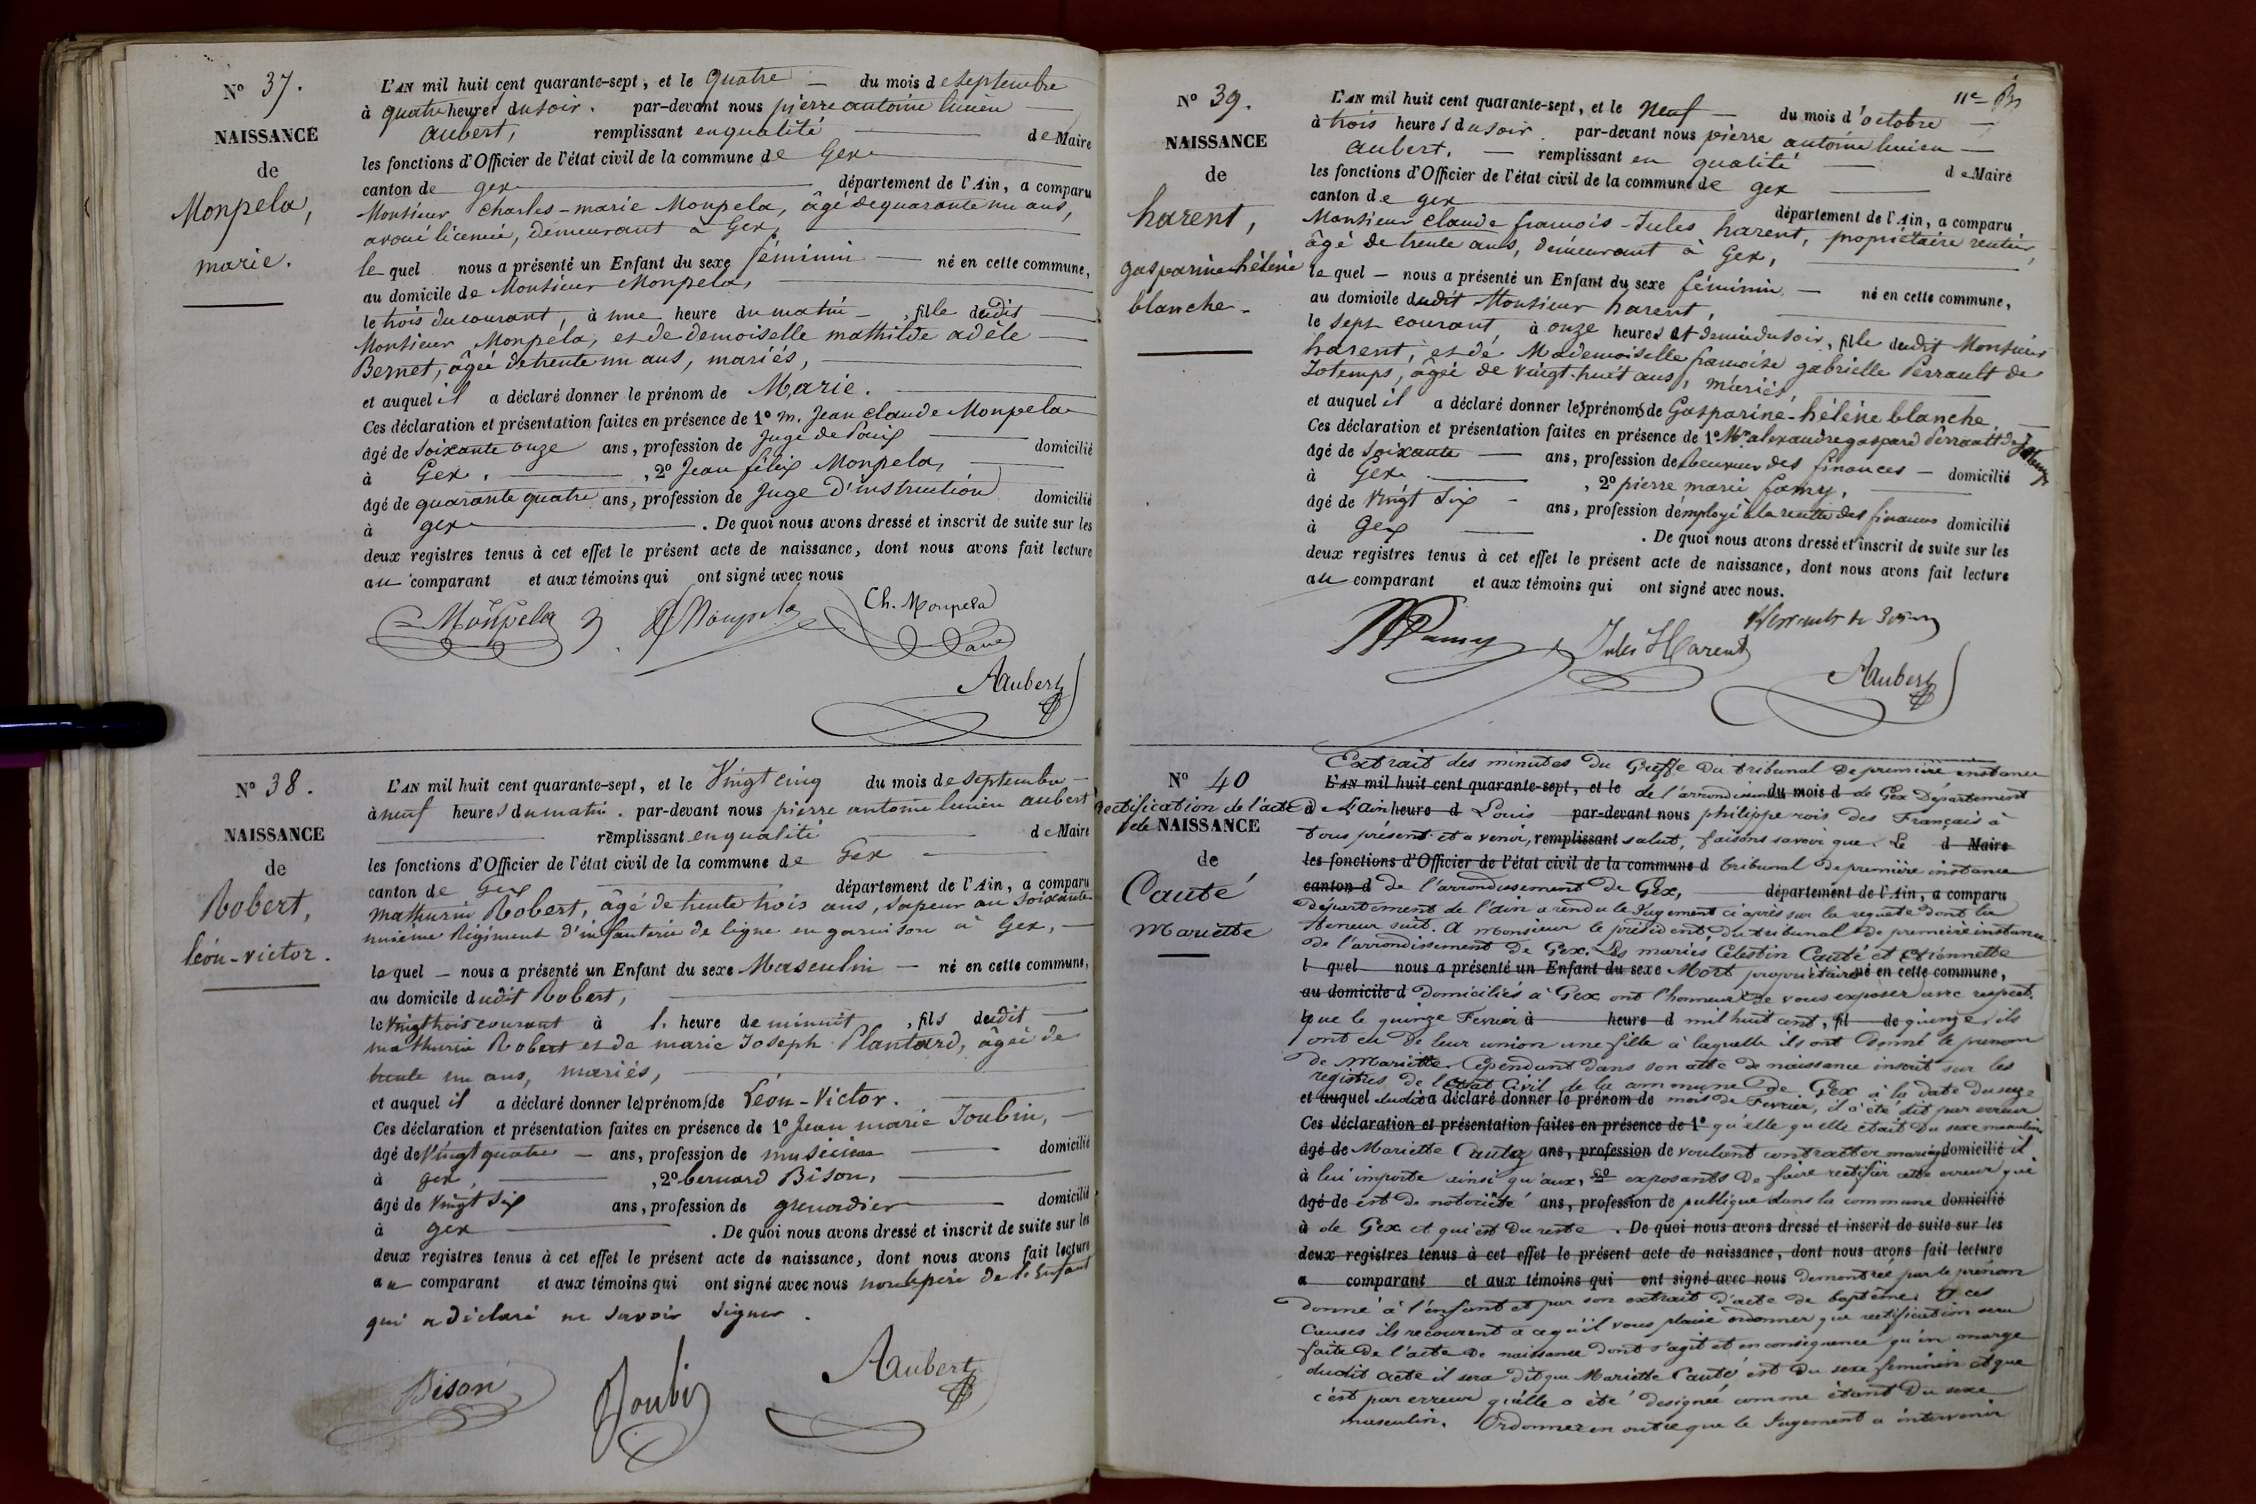 N° 37.
NAISSANCE
de
Monpela,
marie.
L'AN mil huit cent quarante-sept, et le quatre — du mois de septembre
à quatre heures du soir. par-devant nous pierre antoine lucien
aubert, remplissant en qualité de Maire
les fonctions d'Officier de l'état civil de la commune de Gex
canton de gex département de l'Ain, a comparu
Monsieur Charles-marie Monpela, âgé de quarante un ans,
avoué licencié, demeurant à Gex,
lequel nous a présenté un Enfant du sexe féminin — né en cette commune,
au domicile de Monsieur Monpela,
le trois du courant, à une heure du matin —, fille dudit
Monsieur Monpela, et de demoiselle mathilde adèle
Bernet, âgée de trente un ans, mariés,
et auquel il a déclaré donner le prénom de Marie.
Ces déclaration et présentation faites en présence de 1° M. Jean Claude Monpela
âgé de soixante onze ans, profession de Juge de Paix domicilié
à Gex, 2° Jean félix Monpela,
âgé de quarante quatre ans, profession de Juge d'instruction domicilié
à gex . De quoi nous avons dressé et inscrit de suite sur les
deux registres tenus à cet effet le présent acte de naissance, dont nous avons fait lecture
au comparant et aux témoins qui ont signé avec nous
Monpela Monpela Ch. Monpela
Aubert
N° 38.
NAISSANCE
de
Robert,
léon-victor.
L'AN mil huit cent quarante-sept, et le Vingt cinq du mois de septembre —
à neuf heures du matin. par-devant nous pierre antoine lucien aubert
remplissant en qualité de Maire
les fonctions d'Officier de l'état civil de la commune de Gex
canton de Gex département de l'Ain, a comparu
Mathurin Robert, âgé de trente trois ans, sapeur au soixante
unième Régiment d'infanterie de ligne en garnison à Gex, —
lequel — nous a présenté un Enfant du sexe Masculin — né en cette commune,
au domicile dudit Robert,
le vingt trois courant à heure de minuit, fils dudit
mathurin Robert et de marie Joseph Plantard, âgée de
trente un ans, mariés,
et auquel il a déclaré donner les prénoms de Léon-Victor.
Ces déclaration et présentation faites en présence de 1° Jean marie Joubin, —
âgé de Vingt quatre — ans, profession de musicien domicilié
à gex, 2° bernard Bison,
âgé de vingt six ans, profession de grenadier domicilié
à gex . De quoi nous avons dressé et inscrit de suite sur les
deux registres tenus à cet effet le présent acte de naissance, dont nous avons fait lecture
au comparant et aux témoins qui ont signé avec nous non le père de l'Enfant
qui a déclaré ne savoir signer.
Bison Joubin Aubert
N° 39.
NAISSANCE
de
harent,
gasparine hélène
blanche.
L'AN mil huit cent quarante-sept, et le Neuf — du mois d'octobre —
à trois heures du soir. par-devant nous pierre antoine lucien —
aubert, — remplissant en qualité — de Maire
les fonctions d'Officier de l'état civil de la commune de gex
canton de gex département de l'Ain, a comparu
Monsieur Claude françois-Jules harent, propriétaire rentier,
âgé de trente ans, demeurant à Gex,
lequel — nous a présenté un Enfant du sexe féminin — né en cette commune,
au domicile dudit Monsieur harent,
le sept courant, à onze heures et demie du soir, fille dudit Monsieur
harent, et de Mademoiselle françoise gabrielle Perrault de
Jotemps, âgée de vingt-huit ans, mariés,
et auquel il a déclaré donner les prénoms de Gasparine-hélène blanche.
Ces déclaration et présentation faites en présence de 1° Mr alexandre gaspard Perrault de Jotemps
âgé de soixante — ans, profession de Receveur des finances — domicilié
à Gex, 2° pierre marie famy,
âgé de vingt six — ans, profession d'employé à la recette des finances domicilié
à Gex . De quoi nous avons dressé et inscrit de suite sur les
deux registres tenus à cet effet le présent acte de naissance, dont nous avons fait lecture
au comparant et aux témoins qui ont signé avec nous.
Famy Jules Harent Perrault de Jotemps
Aubert
N° 40
rectification de l'acte
de NAISSANCE
de
Cauté
Mariette
Extrait des minutes du Greffe du tribunal de première instance
L'AN mil huit cent quarante-sept, et le de l'arrondissement du mois d de Gex Département
à de l'ain heure d Louis par-devant nous philippe rois des Français à
tous présent et a venir, remplissant salut, faisons savoir que. Le d Maire
les fonctions d'Officier de l'état civil de la commune d tribunal de première instance
canton d de l'arrondissement de Gex, département de l'Ain, a comparu
département de l'ain a rendu le Jugement ci après sur la requete dont la
teneur suit. A monsieur le président du tribunal de première instance
de l'arrondissement de Gex. Les mariés Celestin Cauté et Etiennette
l quel nous a présenté un Enfant du sexe Mort propriétaires né en cette commune,
au domicile d domiciliés à Gex ont l'honneur de vous exposer avec respect.
Que le quinze Fevrier à heure d mil huit cent, fil de quinze, ils
ont eu de leur union une fille à laquelle ils ont donné le prenom
de Mariette. Cependant dans son acte de naissance inscrit sur les
registres de l'état Civil de la commune de Gex à la date du seize
et auquel dudit a déclaré donner le prénom de mois de Fevrier, il a été dit par erreur
Ces déclaration et présentation faites en présence de 1° qu'elle quelle était du sexe masculin
âgé de Mariette Cauté ans, profession de voulant contratter mariage domicilié il
à lui importe ainsi qu'aux, 2° exposants de faire rectifier cette erreur qui
âgé de est de notoriété ans, profession de publique dans la commune domicilié
à de Gex et qui est du reste . De quoi nous avons dressé et inscrit de suite sur les
deux registres tenus à cet effet le présent acte de naissance, dont nous avons fait lecture
a comparant et aux témoins qui ont signé avec nous demontrée par le prénom
donné à l'enfant et par son extrait d'acte de baptême. A ces
Causes ils recourent a ce qu'il vous plaise ordonner que rectification sera
faite de l'acte de naissance dont s'agit et en conséquence qu'en marge
dudit acte il sera dit que Mariette Cauté est du sexe feminin et que
c'est par erreur qu'elle a été designée comme étant du sexe
masculin. Ordonner en outre que le Jugement a intervenir